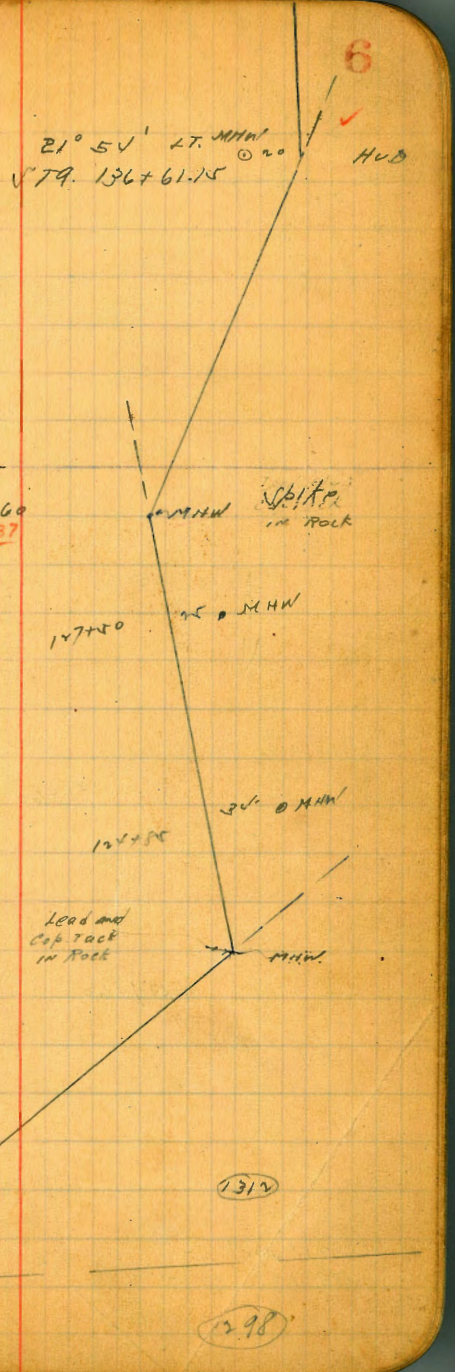 6
21° 54' LT. MHW
⊙ 20 HUB
STA. 136+61.15
60
37
MHW Spike
IN ROCK
127+50 25 • MHW
35 ⊙ MHW
124+85
Lead and
Cop. Tack
IN Rock
MHW.
1312
1298